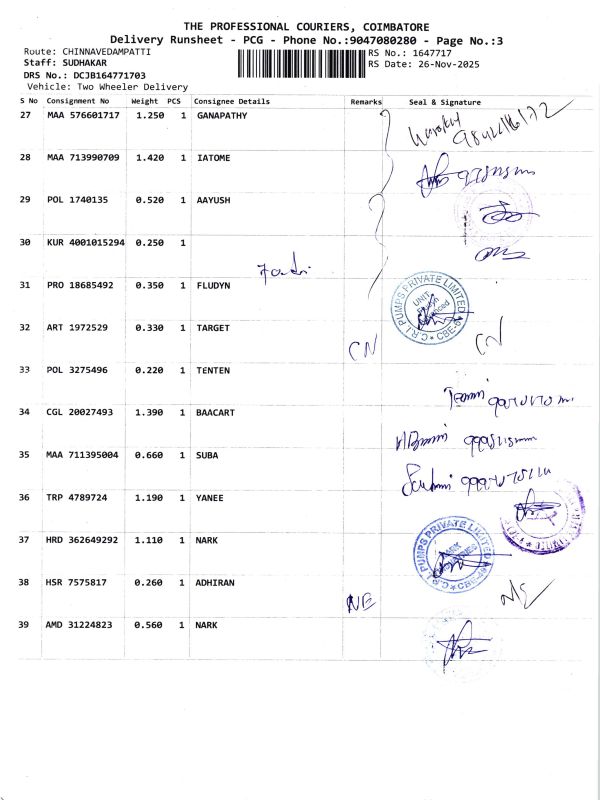 THE PROFESSIONAL COURIERS, COIMBATORE
Delivery Runsheet - PCG - Phone No.:9047080280 - Page No.:3
Route: CHINNAVEDAMPATTI
RS No.: 1647717
Staff: SUDHAKAR
RS Date: 26-Nov-2025
DRS No.: DCJB164771703
Vehicle: Two Wheeler Delivery
S No Consignment No Weight PCS Consignee Details Remarks Seal & Signature
27 MAA 576601717 1.250 1 GANAPATHY
28 MAA 713990709 1.420 1 IATOME
29 POL 1740135 0.520 1 AAYUSH
30 KUR 4001015294 0.250 1
31 PRO 18685492 0.350 1 FLUDYN
PUMPS PRIVATE LIMITED
UNIT
32 ART 1972529 0.330 1 TARGET
CN CN
33 POL 3275496 0.220 1 TENTEN
34 CGL 20027493 1.390 1 BAACART
35 MAA 711395004 0.660 1 SUBA
36 TRP 4789724 1.190 1 YANEE
37 HRD 362649292 1.110 1 NARK
PUMPS PRIVATE LIMITED
38 HSR 7575817 0.260 1 ADHIRAN
NE NE
39 AMD 31224823 0.560 1 NARK